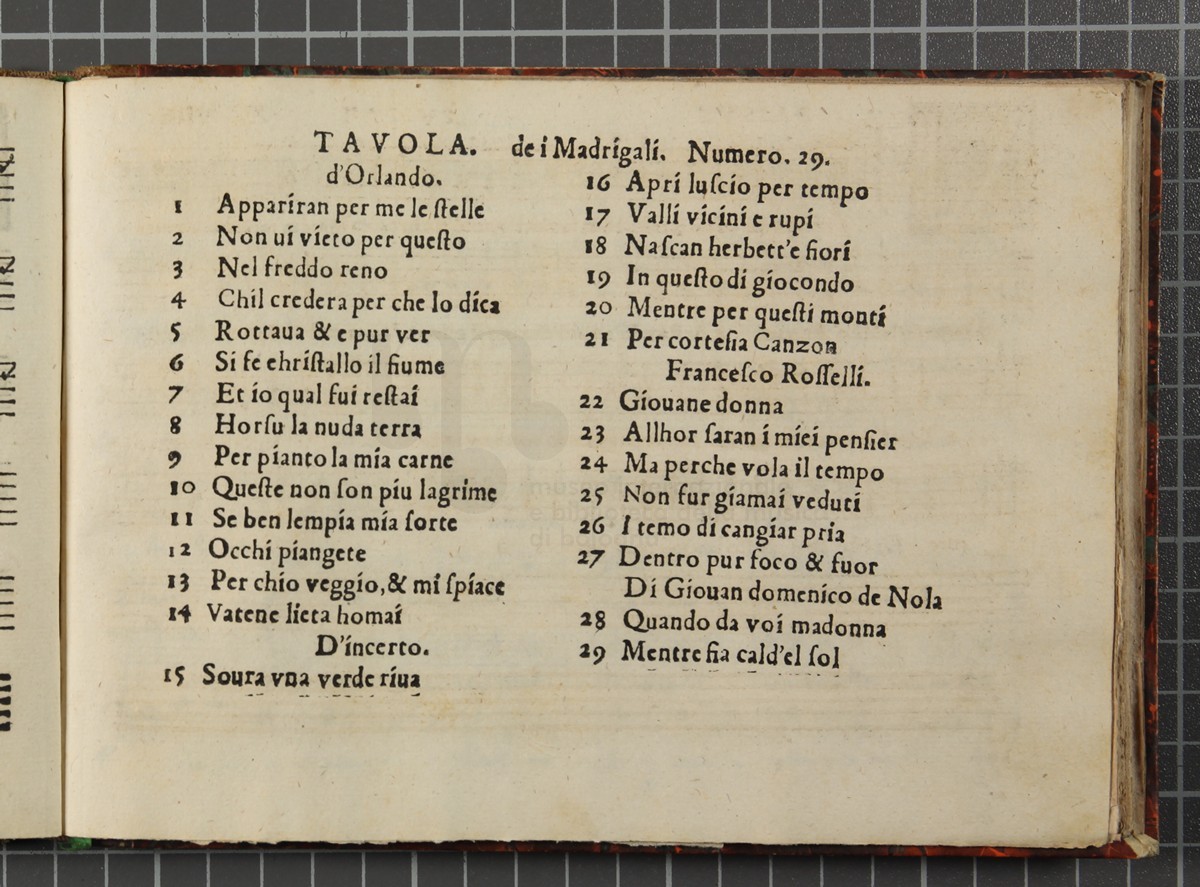 TAVOLA. de i Madrigali. Numero. 29.
d'Orlando.
1 Appariran per me le ſtelle
2 Non ui vieto per queſto
3 Nel freddo reno
4 Chil credera per che lo dica
5 Rottaua & e pur ver
6 Si fe chriſtallo il fiume
7 Et io qual fui reſtai
8 Horſu la nuda terra
9 Per pianto la mia carne
10 Queſte non ſon piu lagrime
11 Se ben lempia mia ſorte
12 Occhi piangete
13 Per chio veggio,& mi ſpiace
14 Vatene lieta homai
D'incerto.
15 Soura vna verde riua
16 Apri luſcio per tempo
17 Valli vicini e rupi
18 Naſcan herbett'e fiori
19 In queſto di giocondo
20 Mentre per queſti monti
21 Per corteſia Canzon
Franceſco Roſſelli.
22 Giouane donna
23 Allhor ſaran i miei penſier
24 Ma perche vola il tempo
25 Non fur giamai veduti
26 I temo di cangiar pria
27 Dentro pur foco & fuor
Di Giouan domenico de Nola
28 Quando da voi madonna
29 Mentre fia cald'el ſol